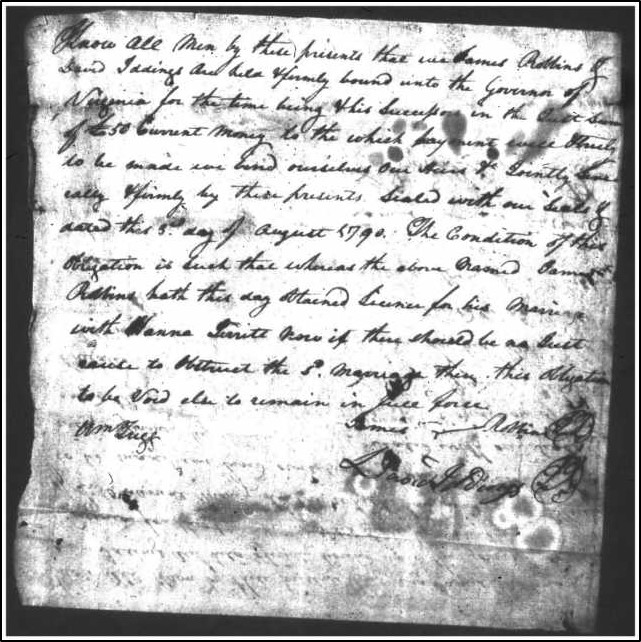 Know All Men by these presents that we James Robbins &
David Iddings are held & firmly bound unto the Governor of
Virginia for the time being & his Successors in the Just Sum
of £50 Current Money to the which payment well & truly
to be made we bind ourselves our Heirs &c Jointly Seve
rally & firmly by these presents Sealed with our Seals &
dated this 3d day of August 1790. The Condition of this
Obligation is Such that whereas the above Named James
Robbins hath this day obtained Licence for his Marriage
with Hanna Now if there should be no Just
cause to Obstruct the sd. Marriage then this Obligation
to be Void else to remain in full force
James Robbins
Abm Trigg
David Iddings